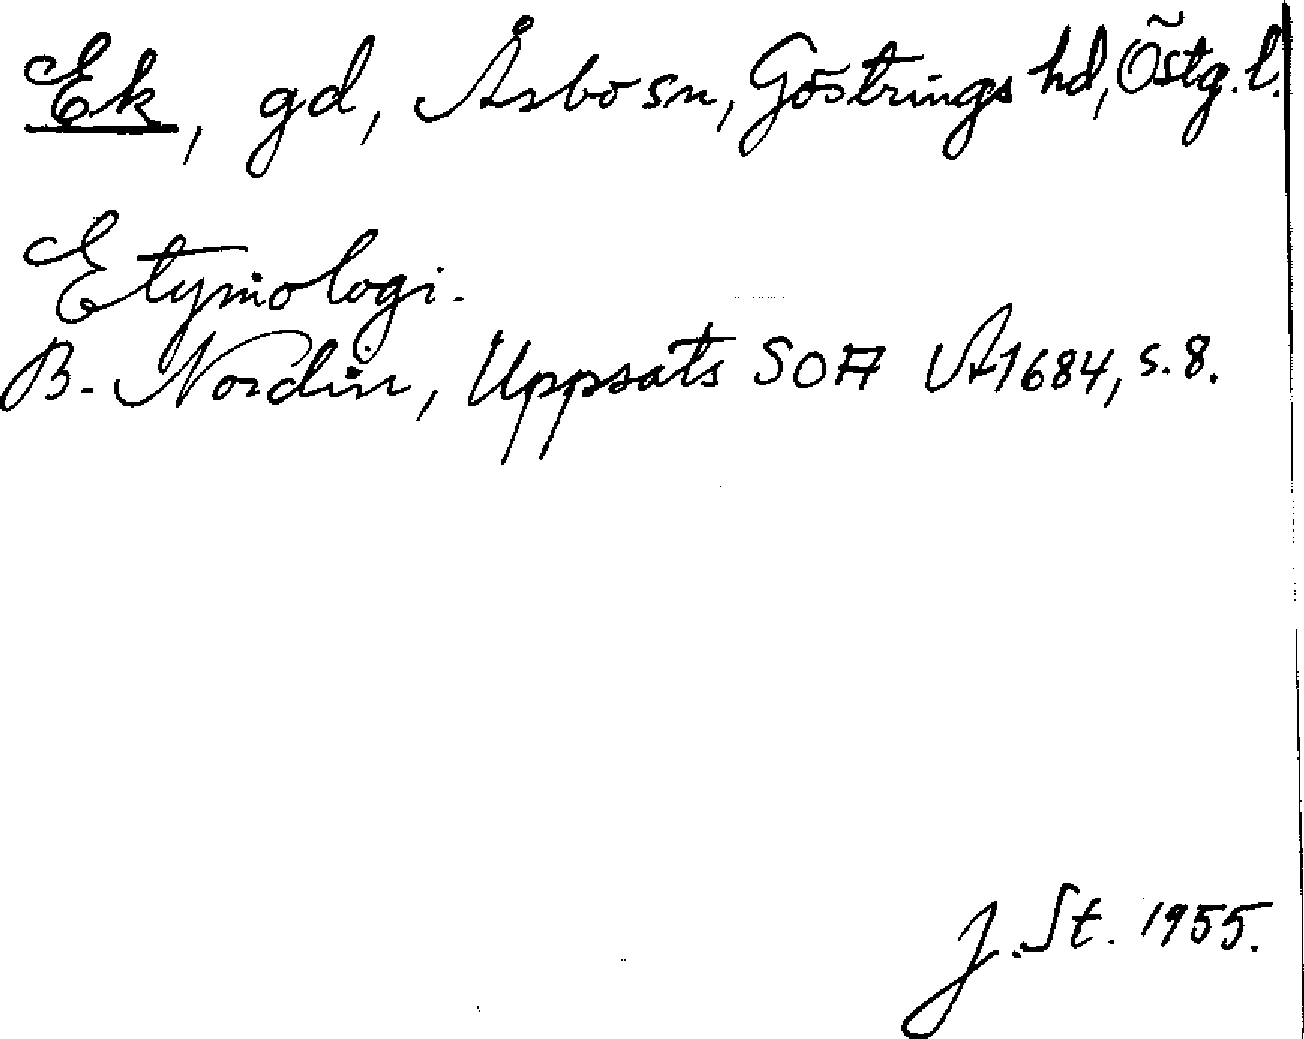 Ek, gd, Åsbo sn, Göstrings hd, Östg. l.
Etymologi.
B. Nordin, Uppsats SOA A1684, s. 8.
J. St. 1955.